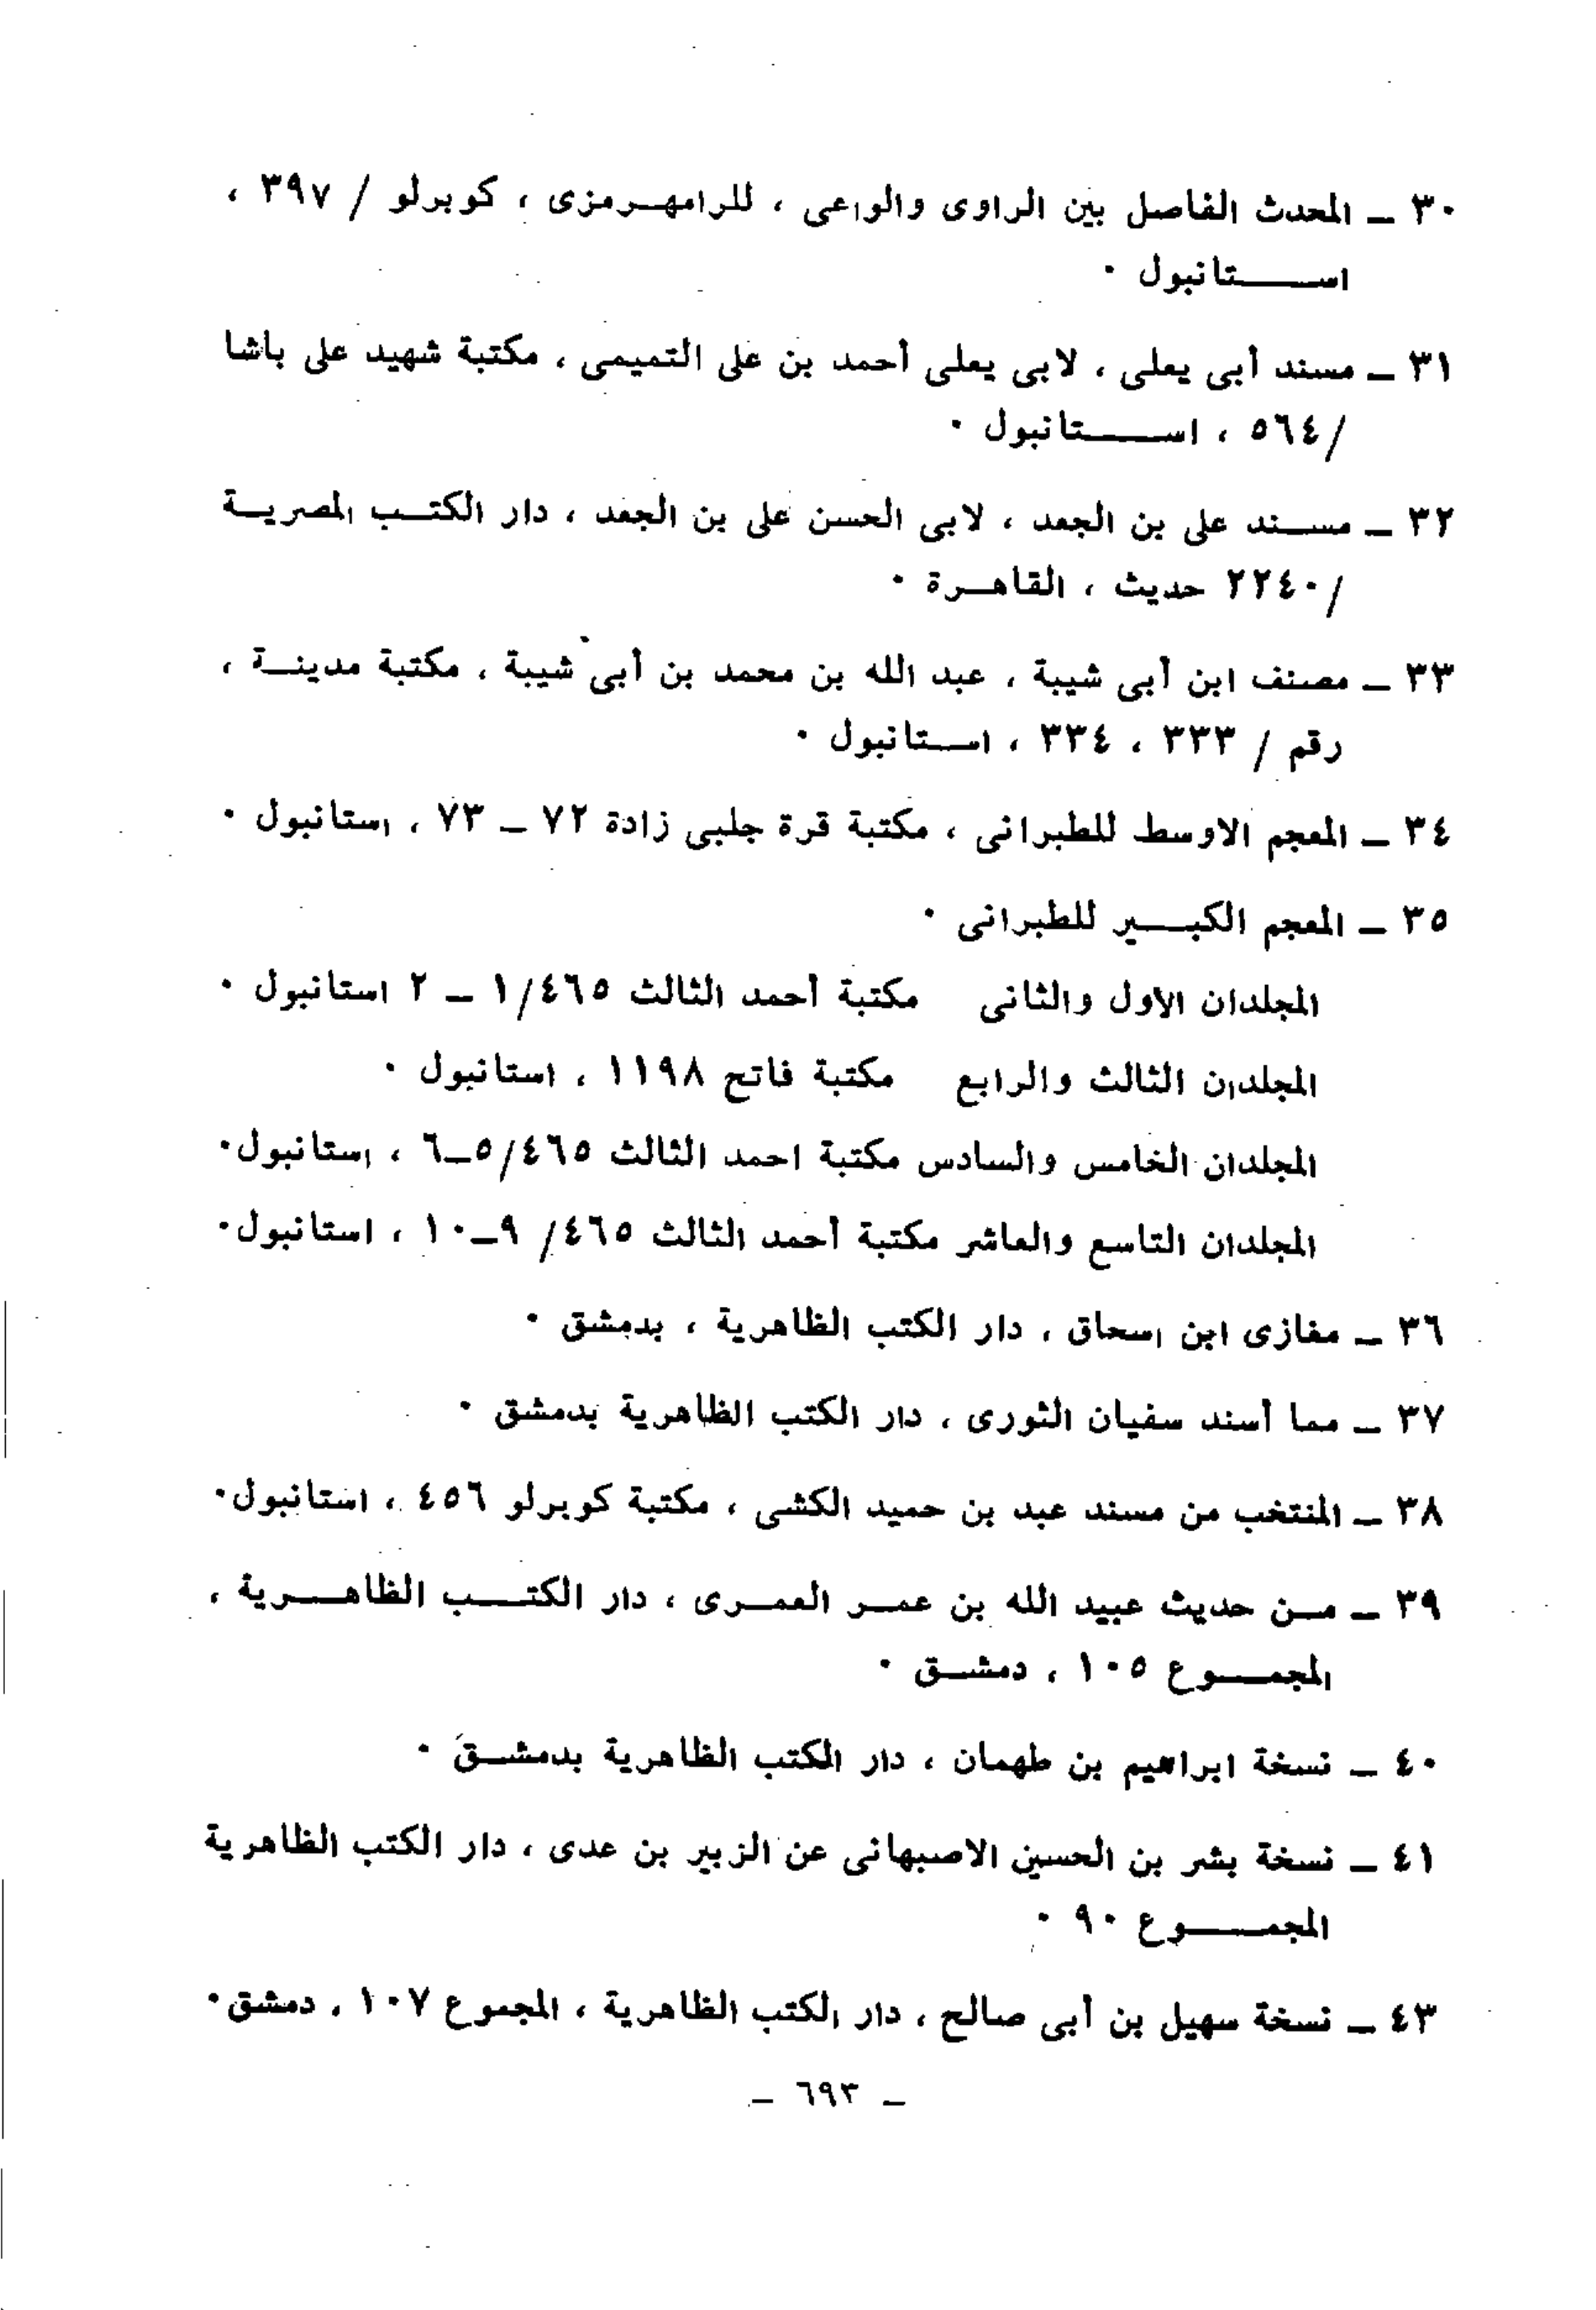 ٣٠ ــ المحدث الفاصل بين الراوى والواعى ، للرامهرمزى ، كوبرلو / ٣٩٧ ،
استانبول ٠
٣١ ــ مسند أبى يعلى ، لابى يعلى أحمد بن على التميمى ، مكتبة شهيد على باشا
/٥٦٤ ، استانبول ٠
٣٢ ــ مسند على بن الجعد ، لابى الحسن على بن الجعد ، دار الكتب المصرية
/٢٢٤٠ حديث ، القاهرة ٠
٣٣ ــ مصنف ابن أبى شيبة ، عبد الله بن محمد بن أبى شيبة ، مكتبة مدينة ،
رقم / ٣٣٣ ، ٣٣٤ ، استانبول ٠
٣٤ ــ المعجم الاوسط للطبرانى ، مكتبة قرة جلبى زادة ٧٢ ــ ٧٣ ، استانبول ٠
٣٥ ــ المعجم الكبير للطبرانى ٠
المجلدان الاول والثانى مكتبة أحمد الثالث ١/٤٦٥ ــ ٢ استانبول ٠
المجلدن الثالث والرابع مكتبة فاتح ١١٩٨ ، استانبول ٠
المجلدان الخامس والسادس مكتبة احمد الثالث ٥/٤٦٥ــ٦ ، استانبول٠
المجلدان التاسع والعاشر مكتبة أحمد الثالث ٤٦٥/ ٩ــ١٠ ، استانبول٠
٣٦ ــ مغازى ابن اسحاق ، دار الكتب الظاهرية ، بدمشق ٠
٣٧ ــ مما أسند سفيان الثورى ، دار الكتب الظاهرية بدمشق ٠
٣٨ ــ المنتخب من مسند عبد بن حميد الكشى ، مكتبة كوبرلو ٤٥٦ ، استانبول٠
٣٩ ــ من حديث عبيد الله بن عمر العمرى ، دار الكتب الظاهرية ،
المجموع ١٠٥ ، دمشق ٠
٤٠ ــ نسخة ابراهيم بن طهمان ، دار الكتب الظاهرية بدمشق ٠
٤١ ــ نسخة بشر بن الحسين الاصبهانى عن الزبير بن عدى ، دار الكتب الظاهرية
المجموع ٩٠ ٠
٤٣ ــ نسخة سهيل بن أبى صالح ، دار الكتب الظاهرية ، المجموع ١٠٧ ، دمشق٠
ــ ٦٩٣ ــ